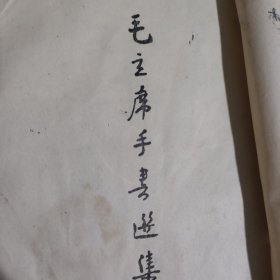 毛主席手書選集